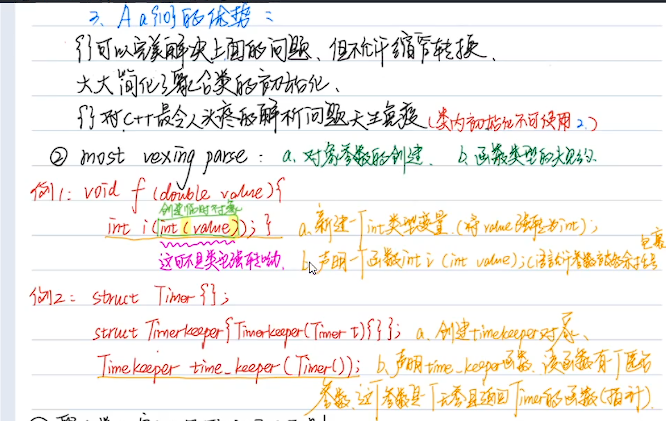 3、A a{10}的优势：
{}可以完美解决上面的问题、但不允许缩窄转换、
大大简化了聚合类的初始化、
{}对C++最令人头疼的解析问题天生免疫(类内初始化不可使用2.)
② most vexing parse： a. 对象参数的创建. b. 函数类型的
例1: void f (double value){
创建临时对象
int i(int(value)); } a. 新建一个int类型变量.(将value强转为int);
这可不是类型强转呦. b. 声明一个函数int i (int value);
例2: struct Timer{};
struct Timerkeeper{Timerkeeper(Timer t){}}; a. 创建timekeeper对象、
Timekeeper time_keeper(Timer()); b. 声明time_keeper函数、该函数有一个匿名
参数、这个参数是一个无参且返回Timer的函数(指针).